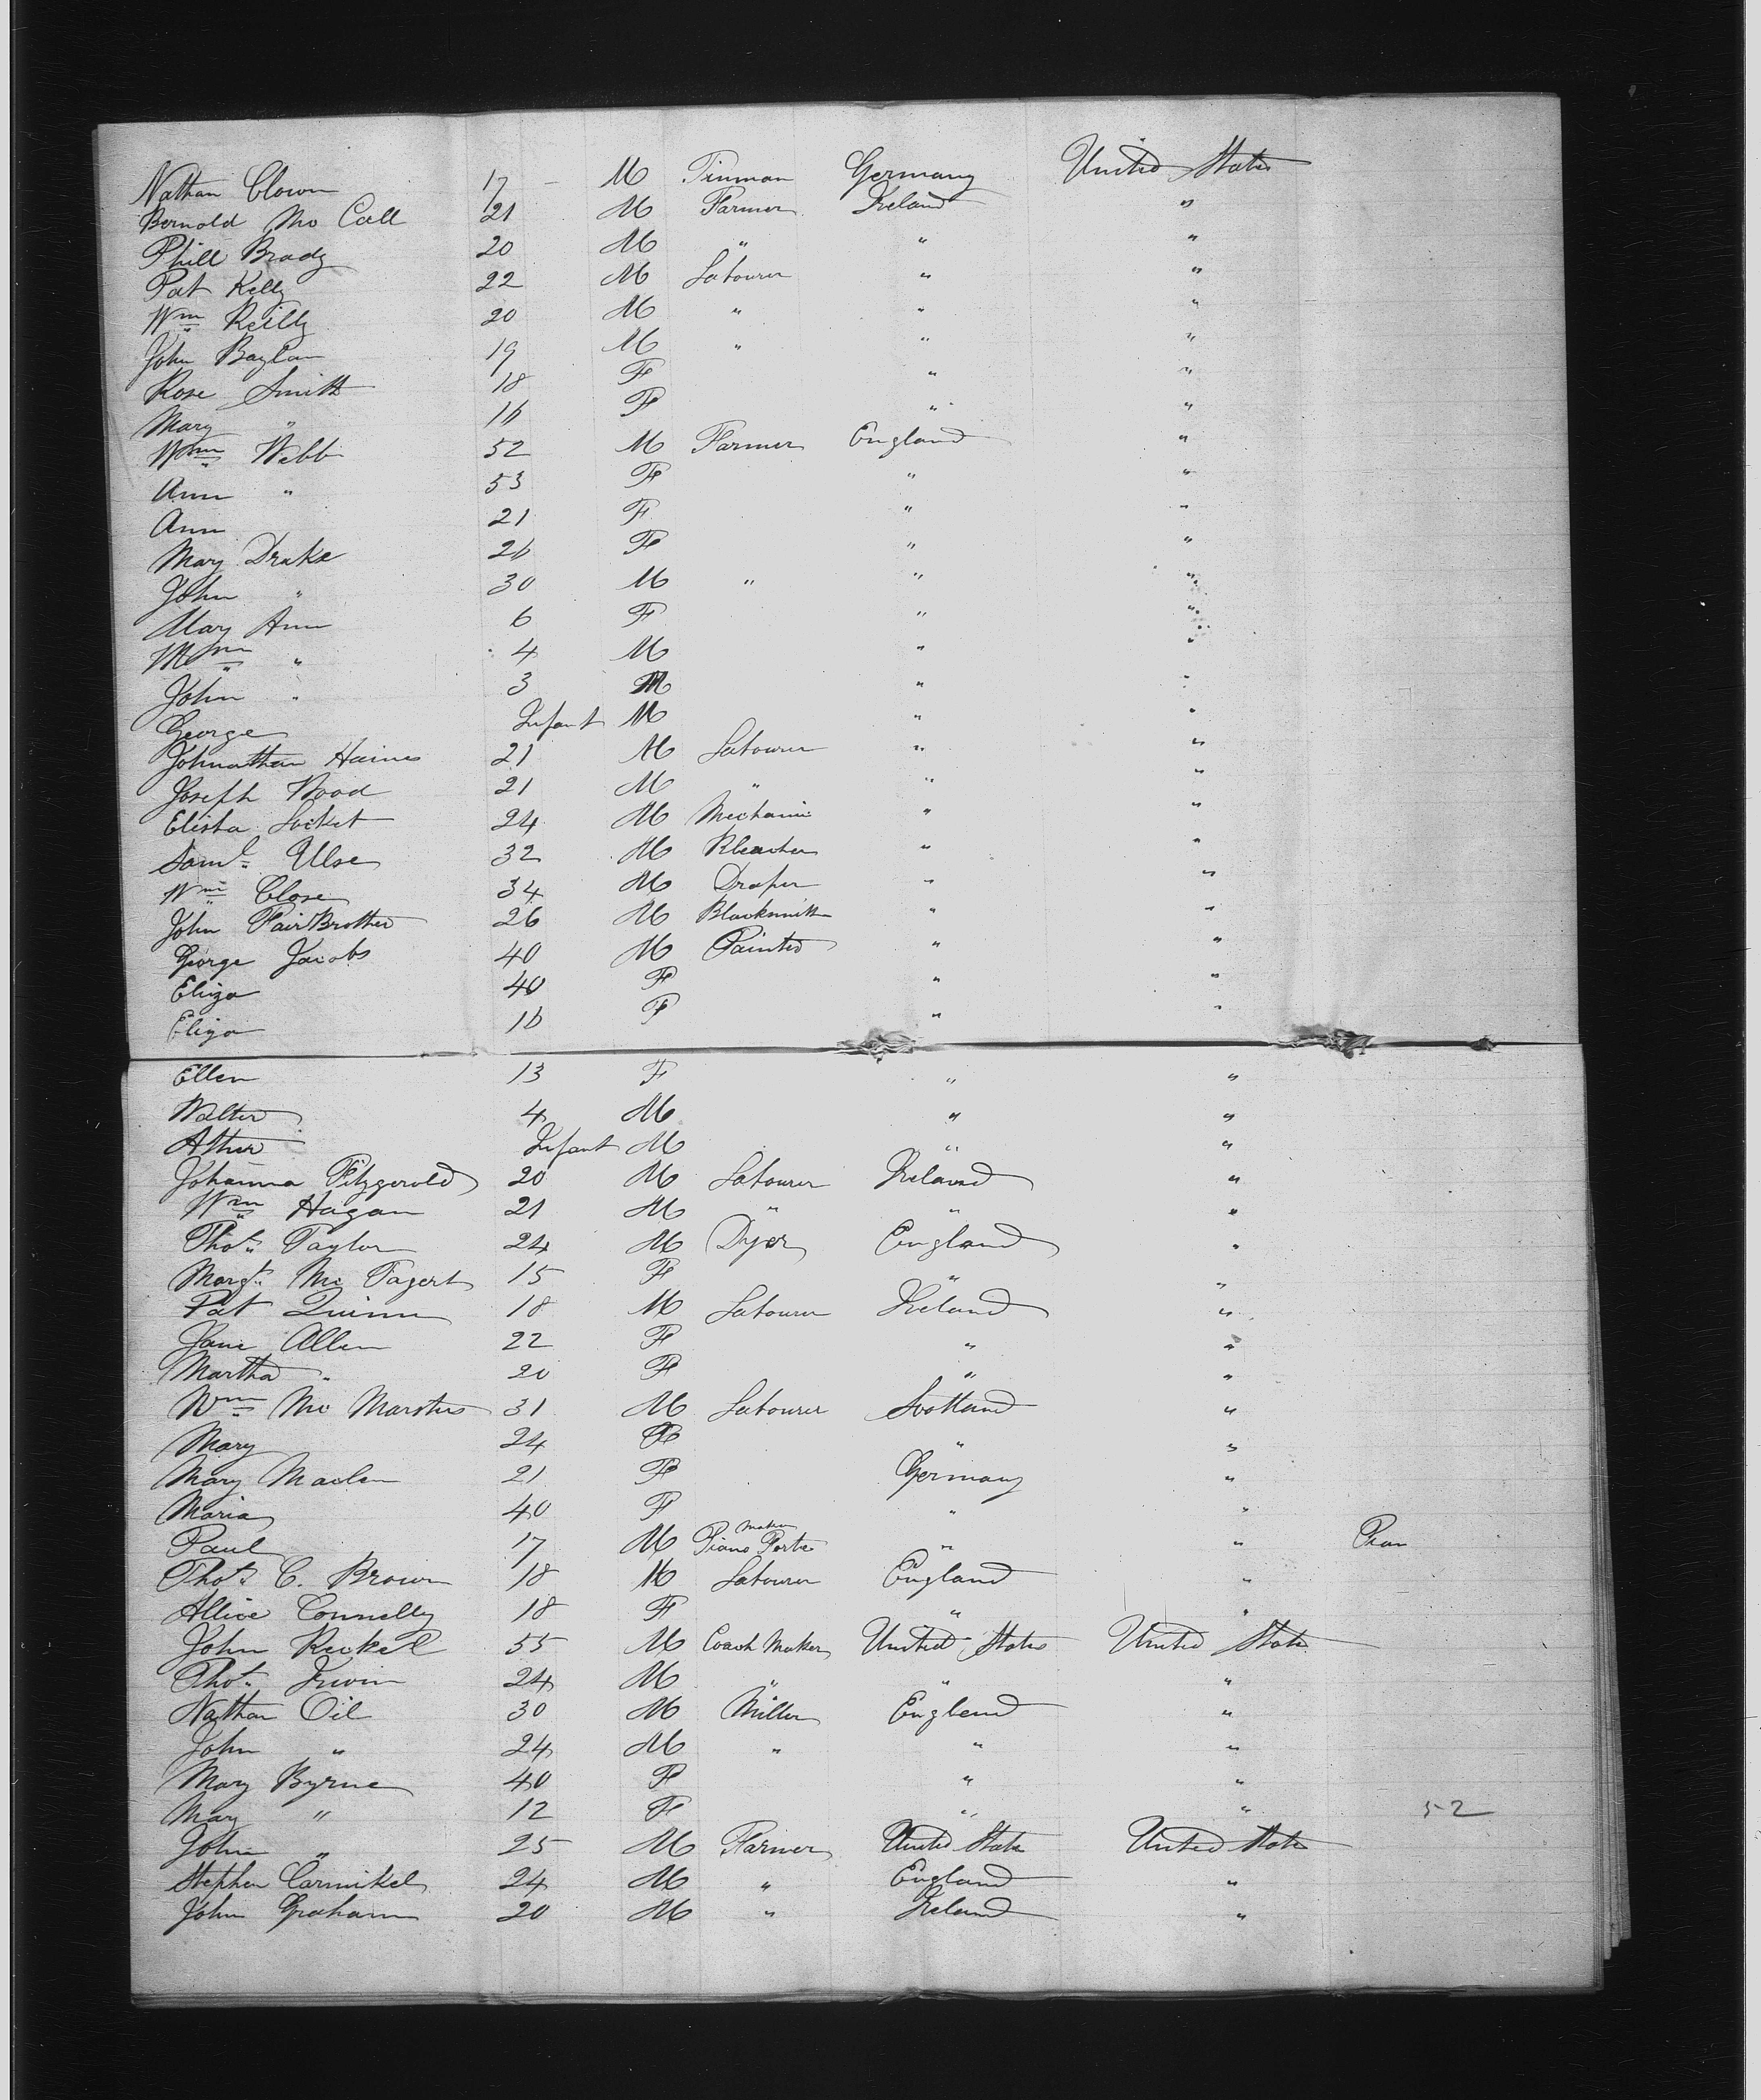 Nathan Clown 17 - M Tinman Germany United States
Bernold Mc Call 21 M Farmer Ireland "
Phill Brady 20 M " " "
Pat Kelly 22 M Labourer " "
Wm Reilly 20 M " " "
John Boylan 19 M " " "
Rose Smith 18 F " "
Mary " 16 F " "
Wm Webb 52 M Farmer England "
Ann " 53 F " "
Ann 21 F " "
Mary Drake 26 F " "
John " 30 M " " "
Mary Ann 6 F " "
Wm " 4 M " "
John " 3 M " "
George Infant M " "
Johnathan Haines 21 M Labourer " "
Joseph Wood 21 M " " "
Elisha Locket 24 M Mechanic " "
Saml Ulse 32 M Bleacher " "
Wm Close 34 M Draper " "
John FairBrother 26 M Blacksmith " "
George Jacobs 40 M Painter " "
Eliza 40 F " "
Eliza 16 F " "
Ellen 13 F " "
Walter 4 M " "
Ather Infant M " "
Johanna Fitzgerold 20 M Labourer Ireland "
Wm Hagan 21 M " " "
Thos Taylor 24 M Dyer England "
Margt Mc Tagert 15 F " "
Pat Quinn 18 M Labourer Ireland "
Jane Allen 22 F " "
Martha " 20 F " "
Wm Mc Marster 31 M Labourer Scotland "
Mary 24 F " "
Mary Maclen 21 F Germany "
Maria 40 F " "
Paul 17 M Piano Forte maker " "
Thos C. Brown 18 M Labourer England "
Allice Connelly 18 F " "
John Reckel 55 M Coach Maker United States United States
Thos Irwin 24 M " " "
Nathan Oil 30 M Miller England "
John " 24 M " " "
Mary Byrne 40 F " "
Mary " 12 F " " 52
John " 25 M Farmer United States United States
Stephen Carmikel 24 M " England "
John Graham 20 M " Ireland "